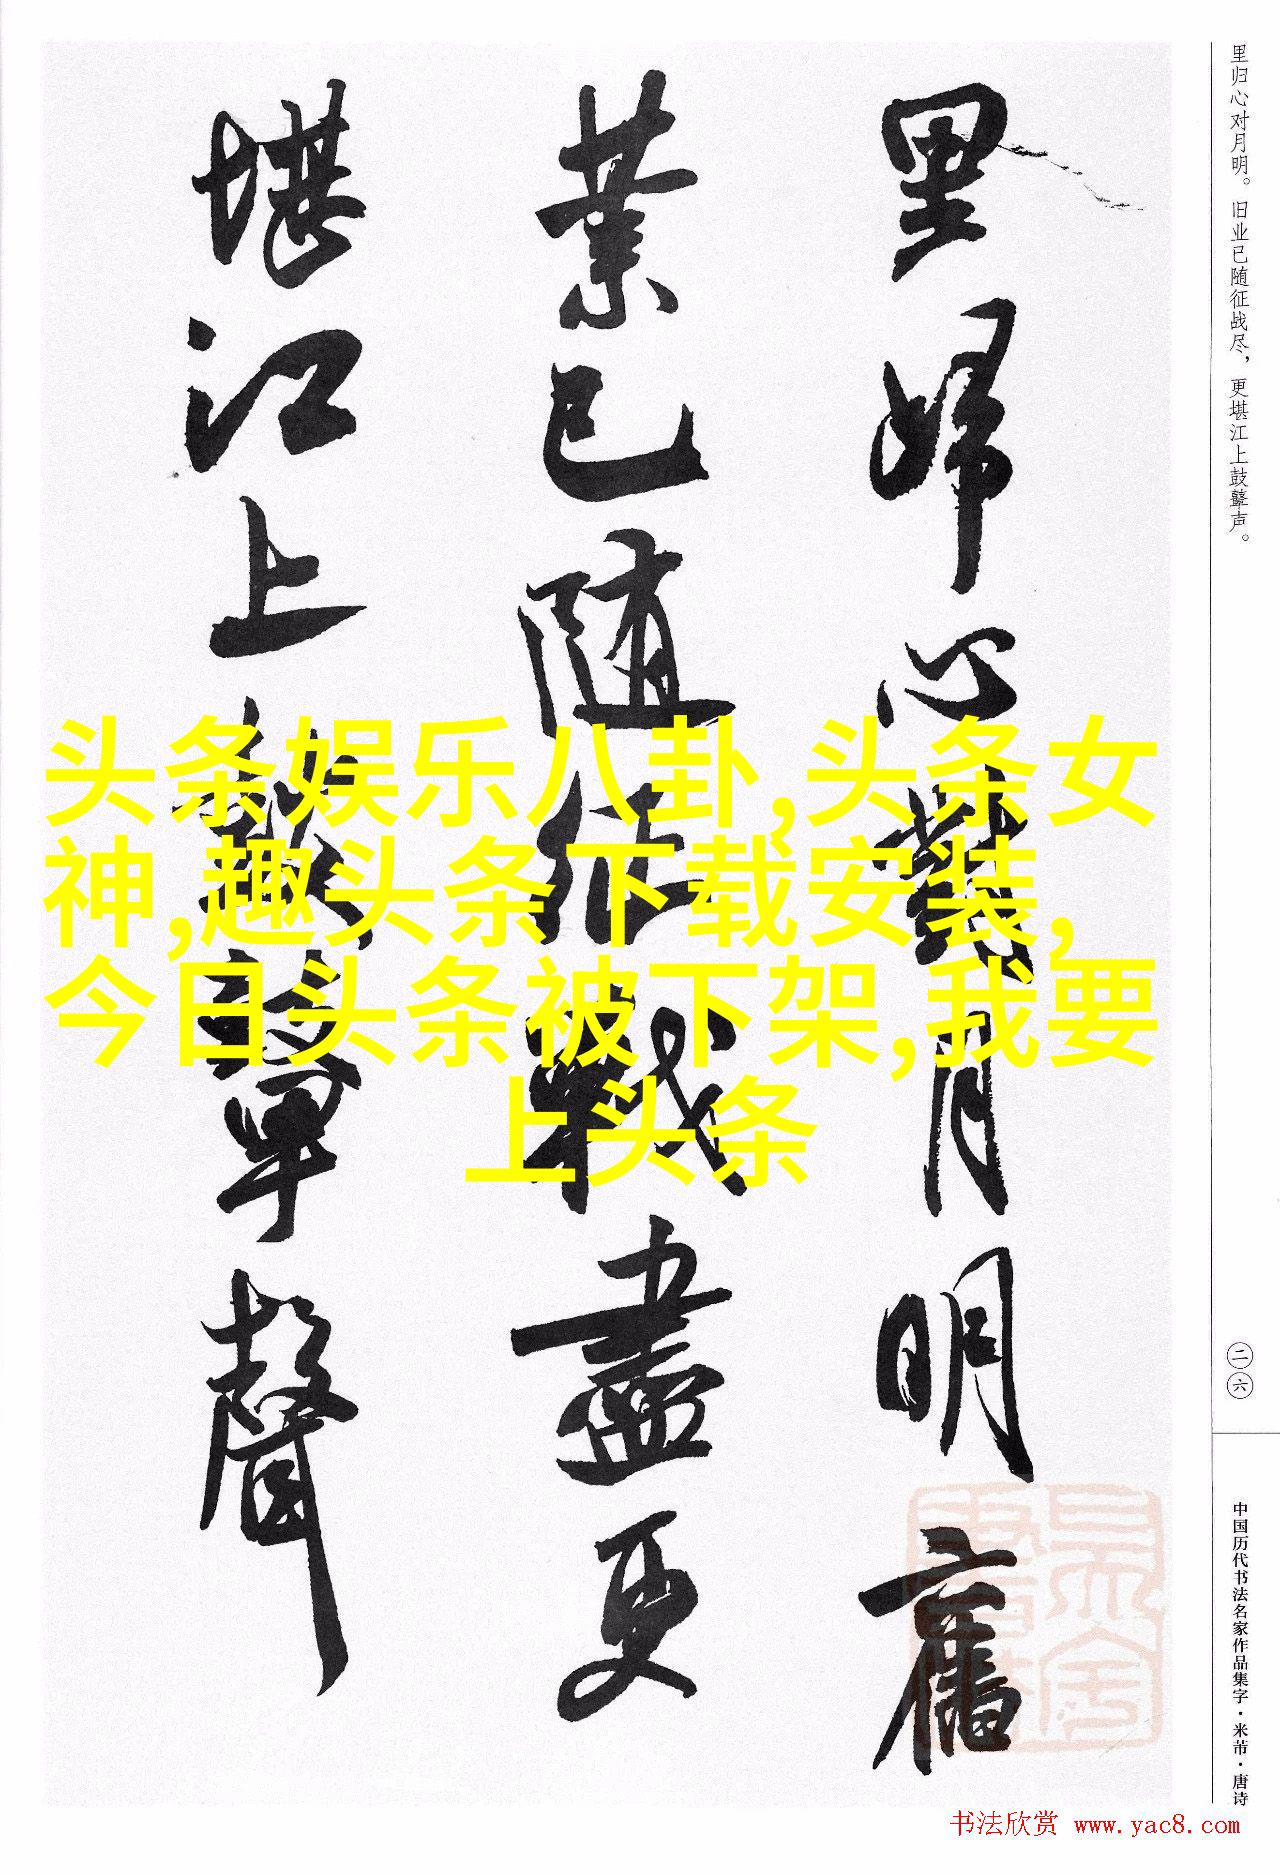 里归心对月明。旧业已随征战尽，更堪江上鼓鼙声。
二六
中国历代书法名家作品集字·米芾·唐诗
里歸心對月明舊
業已随征戰盡更
堪江上鼓鼙聲
头条娱乐八卦,头条女
神,趣头条下载安装,
今日头条被下架,我要
上头条
书法欣赏 www.yac8.com